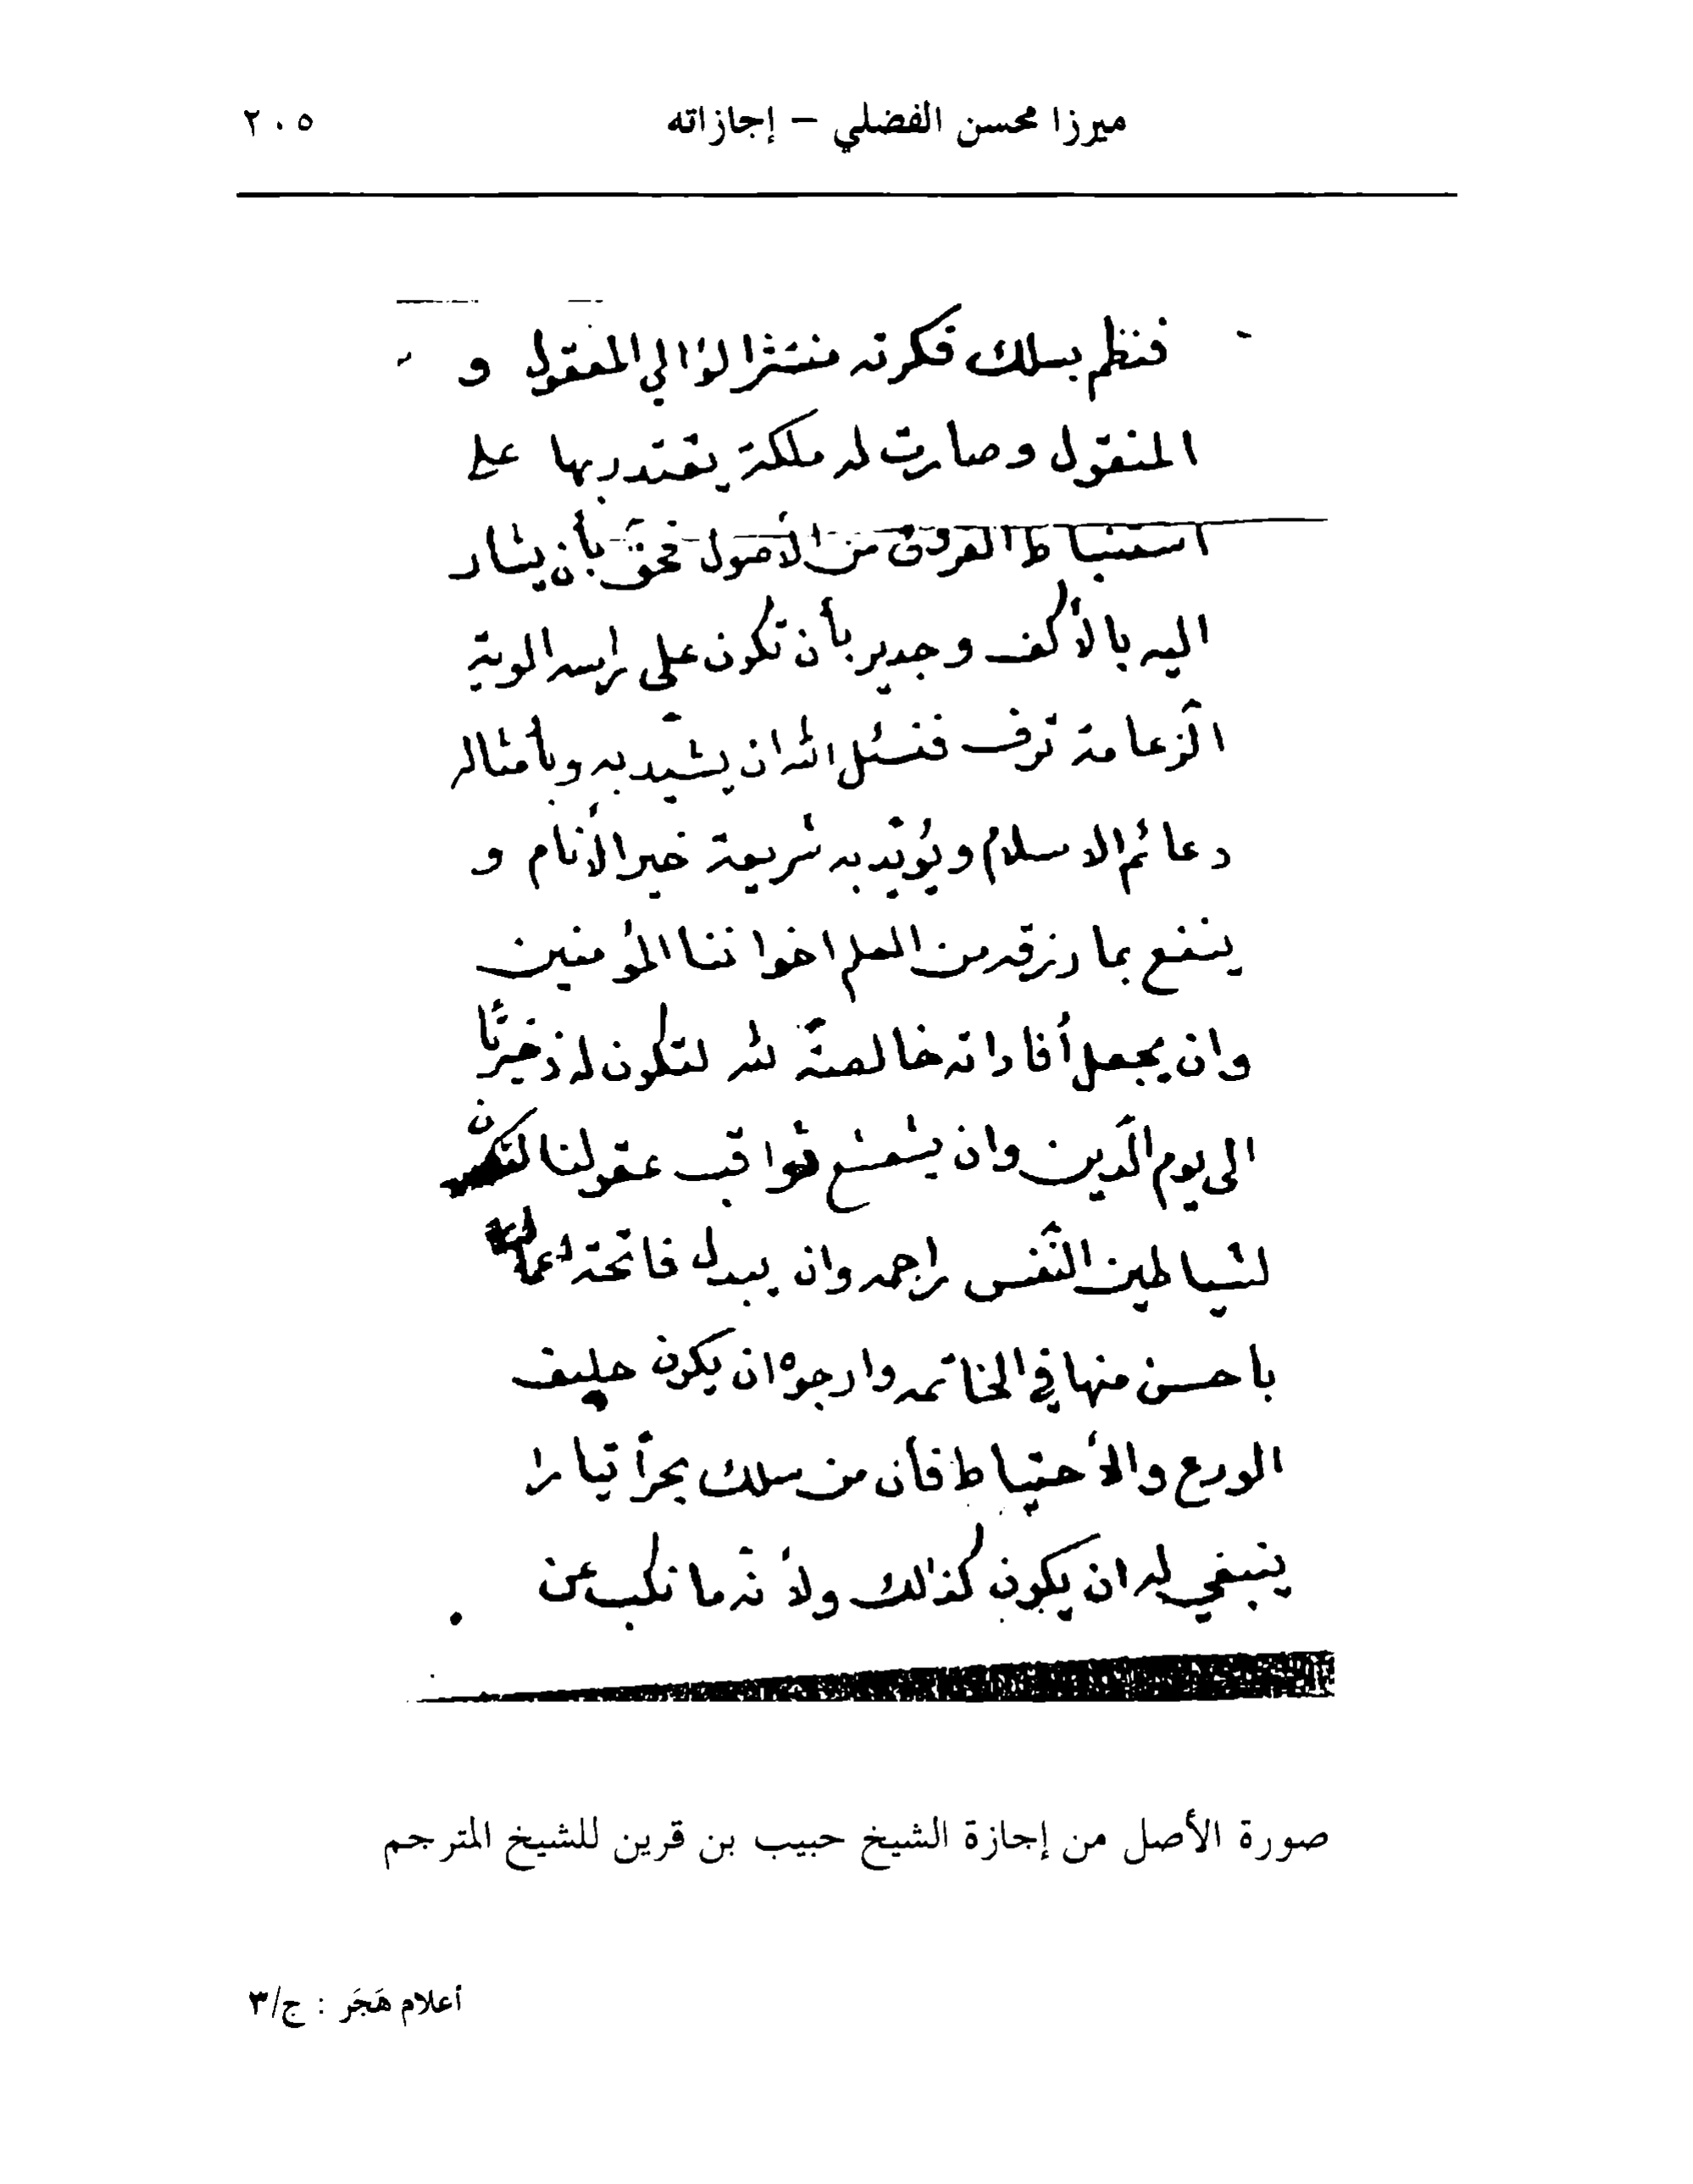 ميرزا محسن الفضلي – إجازاته ٢٠٥
فنظم بسلك فكرته منتثرا لؤالي المعقول و
المنقول وصارت له ملكة يقتدر بها على
استنباط الفروع من الأصول فحق بأن يشار
اليه بالأكف وجدير بأن تكون على رأسه الوية
الزعامة ترف فنسئل الله ان يشيّد به وبأمثاله
دعائم الاسلام ويؤيّد به شريعة خير الأنام و
ينفع بما رزقه من العلم اخواننا المؤمنين
وان يجعل أفاداته خالصةً لله لتكون له ذخيرتًا
الى يوم الَّدين وان يشعشع ثواقب عقولنا لتكن
لشياطين النَّفس راجمه وان يبدل فاتحة
باحسن منها في الخاتمه وارجوه ان يكون حليف
الورع والأحتياط فأن من سلك بحرأ تيارا
ينبغي له ان يكون كذلك ولأنّه ما نكب عن
صورة الأصل من إجازة الشيخ حبيب بن قرين للشيخ المترجم
أعلام هَجَر : ج/٣